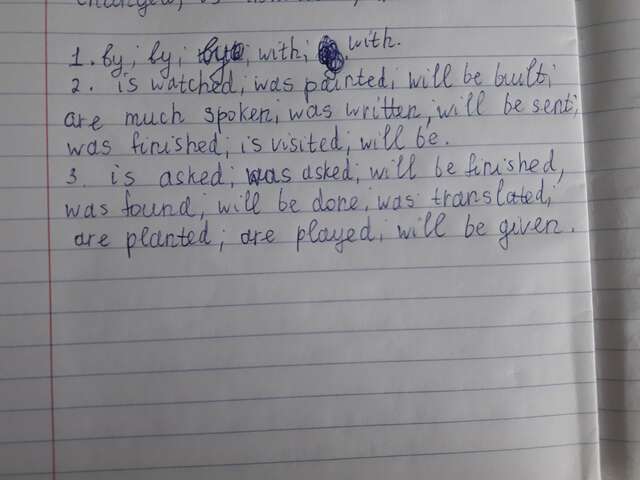 1. by; by; by; with; with.
2. is watched; was painted; will be built;
are much spoken; was written; will be sent;
was finished; is visited; will be.
3. is asked; was asked; will be finished,
was found; will be done; was translated;
are planted; are played; will be given.